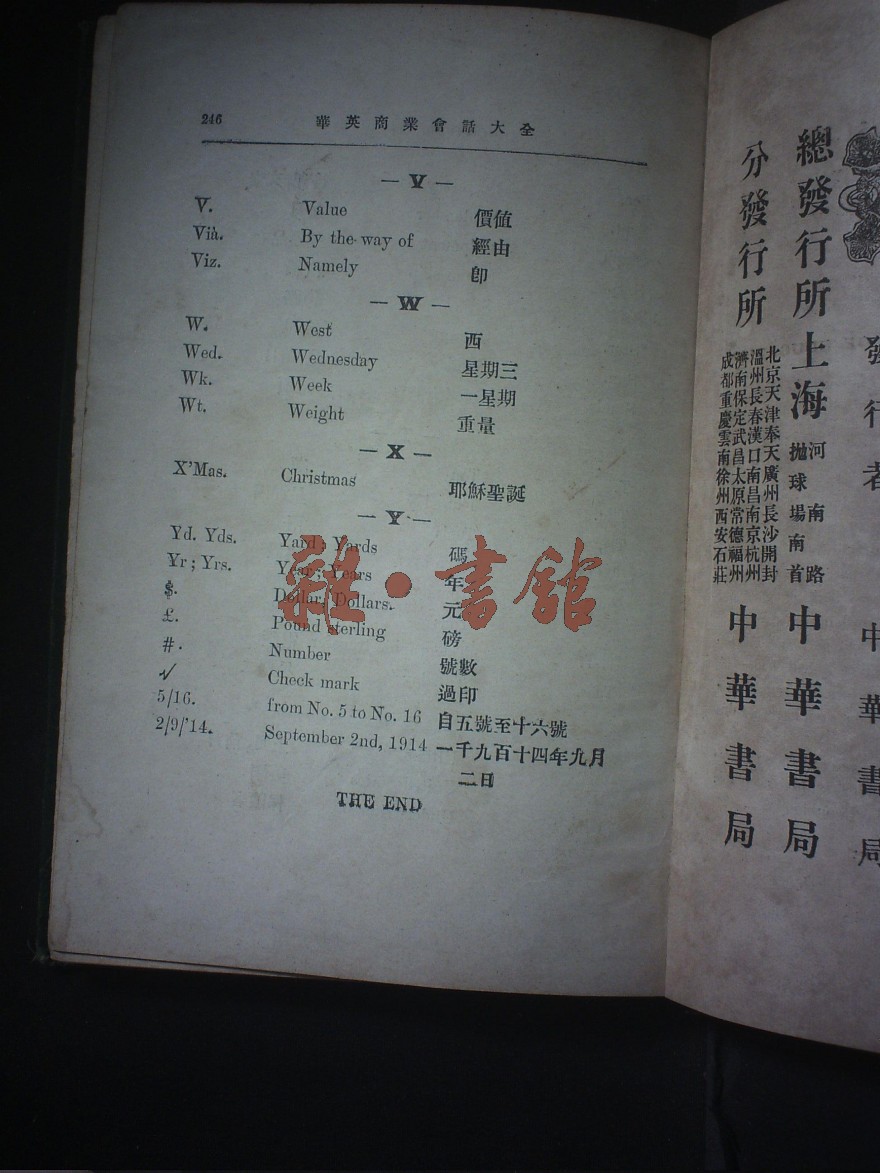 246 華英商業會話大全
— V —
V. Value 價值
Vià. By the way of 經由
Viz. Namely 卽
— W —
W. West 西
Wed. Wednesday 星期三
Wk. Week 一星期
Wt. Weight 重量
— X —
X'Mas. Christmas 耶穌聖誕
— Y —
Yd. Yds. Yard; Yards 碼
Yr; Yrs. Year; Years 年
$. Dollar. Dollars. 元
£. Pound sterling 磅
#. Number 號數
√ Check mark 過印
5/16. from No. 5 to No. 16 自五號至十六號
2/9/'14. September 2nd, 1914 一千九百十四年九月
二日
THE END
雜·書館
發行者 中華書局
總發行所 上海 河南路
拋球場南首 中華書局
分發行所
北京天津奉天廣州長沙開封
溫州長春漢口南昌南京杭州
濟南保定武昌太原常德福州
成都重慶雲南徐州西安石莊
中華書局